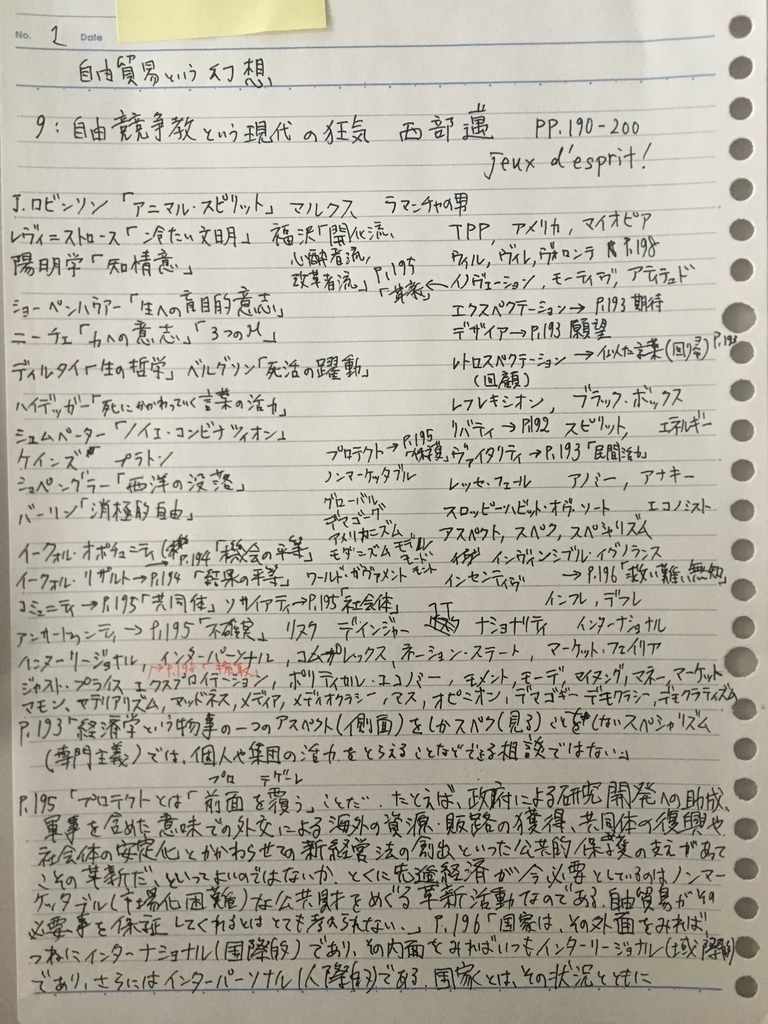 No. 2 Date
自由貿易という幻想
9:自由競争教という現代の狂気 西部邁 PP.190-200
jeux d'esprit!
J.ロビンソン「アニマル・スピリット」マルクス ラマンチャの男
レヴィ=ストロース「冷たい文明」 福沢「開化流、 TPP, アメリカ, マイオピア
心酔者流, ウィル, ヴィレ, ヴォロンテ P.198
陽明学「知情意」 改革者流」P.195「革新」← イノヴェーション, モーティヴ, アティテュド
ショーペンハウアー「生への盲目的意志」 エクスペクテーション→P.193 期待
ニーチェ「力への意志」「3つのM」 デザイア→P.193 願望
ディルタイ「生の哲学」ベルグソン「死活の躍動」 レトロスペクテーション→似た言葉(回帰)P.193
(回顧)
ハイデッガー「死にかかわっていく言葉の活力」 レフレキシオン, ブラック・ボックス
シュムペーター「ノイエ・コンビナツィオン」 リバティ→P.192 スピリット, エネルギー
ケインズ プラトン プロテクト→P.195「保護」 ヴァイタリティ→P.193「民間活力」
シュペングラー「西洋の没落」 ノンマーケッタブル レッセ・フェール アノミー, アナキー
バーリン「消極的自由」 グローバル スロッピーハビット・オヴ・ソート エコノミスト
デマゴーグ
アメリカニズム アスペクト, スペク, スペシャリズム
イークォル・オポチュニティ→P.194「機会の平等」 モダニズム モデル モード インヴィンシブル・イグノランス
イークォル・リザルト→P.194「結果の平等」 ワールド・ガヴァメント インセンティヴ →P.196「救い難い無知」
コミュニティ→P.195「共同体」ソサイアティ→P.195「社会体」 インフレ, デフレ
アンサートゥンティ→P.195「不確実」 リスク デインジャー IT ナショナリティ インターナショナル
インターリージョナル, インターパーソナル, コムプレックス, ネーション・ステート, マーケット・フェイリア
ジャスト・プライス エクスプロイテーション, ポリティカル・エコノミー, モメント, モーデ, マイヌング, マネー, マーケット
マモン, マテリアリズム, マッドネス, メディア, メディオクラシー, マス, オピニオン, デマゴギー デモクラシー, デモクラティズム
P.193「経済学という物事の一つのアスペクト(側面)をしかスペク(見る)ことをしないスペシャリズム
(専門主義)では、個人や集団の活力をとらえることなどできる相談ではない」
プロ テゲーレ
P.195「プロテクトとは「前面を覆う」ことだ. たとえば、政府による研究開発への助成、
軍事を含めた意味での外交による海外の資源・販路の獲得、共同体の復興や
社会体の安定化とかかわらせての新経営法の創出といった公共的保護の支えがあって
こその革新だ、といってよいのではないか. とくに先進経済が今必要としているのはノンマー
ケッタブル(市場化困難)な公共財をめぐる革新活動なのである. 自由貿易がその
必要事を保証してくれるとはとても考えられない.」P.196「国家は、その外面をみれば、
つねにインターナショナル(国際的)であり、その内面をみればいつもインターリージョナル(域際的)
であり、さらにはインターパーソナル(人際的)である. 国家とは、その状況とともに